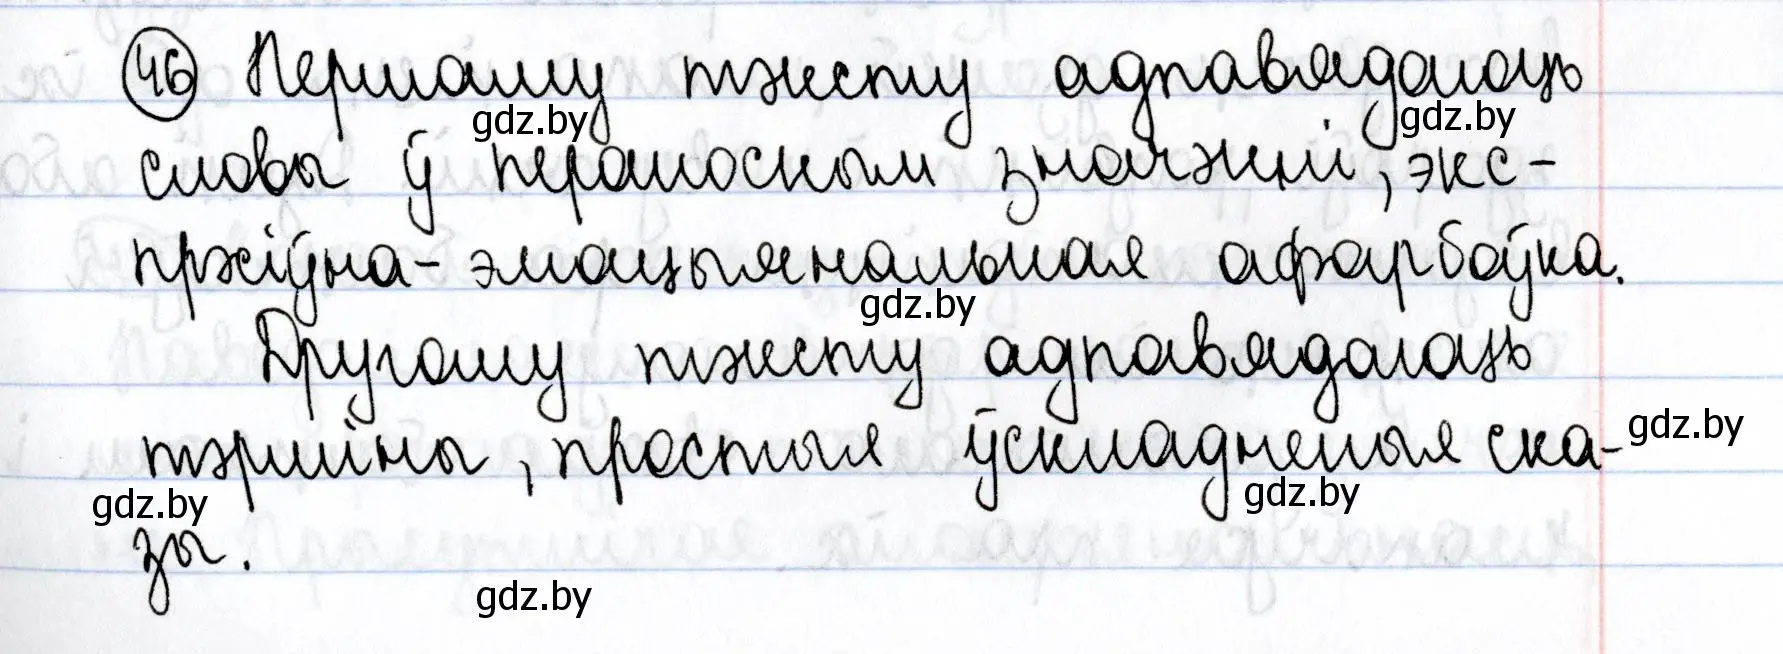 46 Першаму тэксту адпавядаюць
gdz.by gdz.by
словы ў пераносным значэнні, экс-
прэсіўна-эмацыянальная афарбоўка.
gdz.by
Другому тэксту адпавядаюць
gdz.by
тэрміны, простыя ўскладненыя ска-
gdz.by gdz.by
зы.
gdz.by